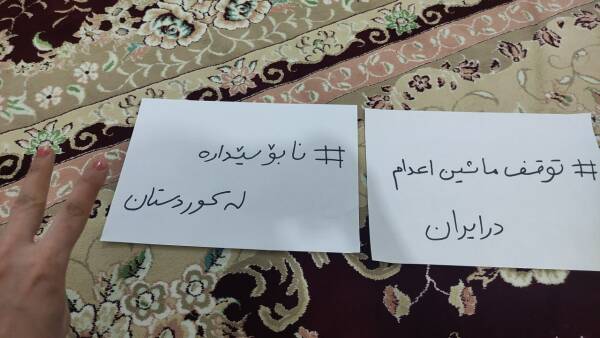 # توقف ماشین اعدام
در ایران
# نا بۆ سێداره
له کوردستان